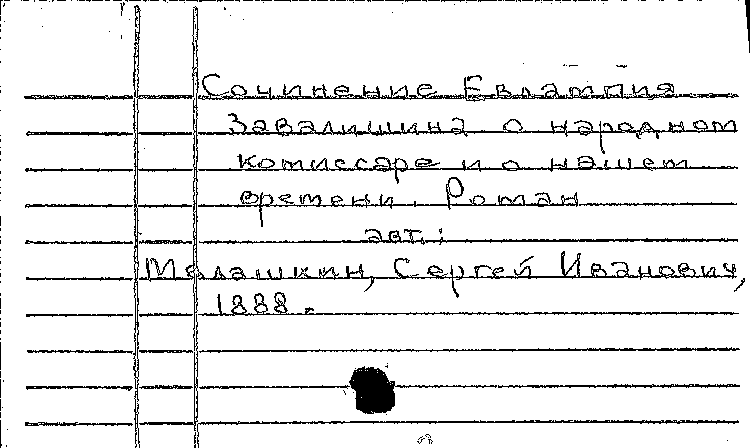 Сочинение Евлампия
Завалишина о народном
комиссаре и о нашем
времени. Роман
авт.:
Малашкин, Сергей Иванович,
1888.